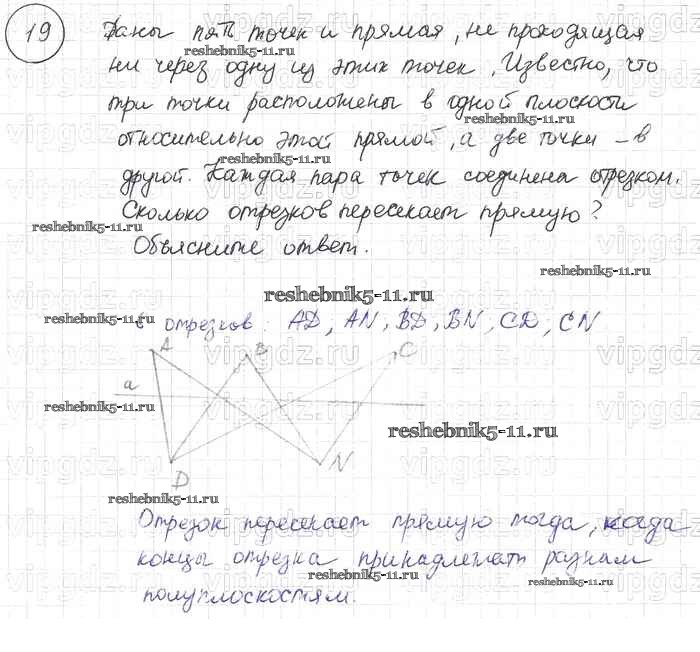 19 Даны пять точек и прямая, не проходящая
ни через одну из этих точек. Известно, что
три точки расположены в одной плоскости
относительно этой прямой, а две точки – в
другой. Каждая пара точек соединена отрезком.
Сколько отрезков пересекает прямую?
Объясните ответ.
reshebnik5-11.ru
6 отрезков: AD, AN, BD, BN, CD, CN
A B C
a
D N
Отрезок пересекает прямую тогда, когда
концы отрезка принадлежат разным
полуплоскостям.